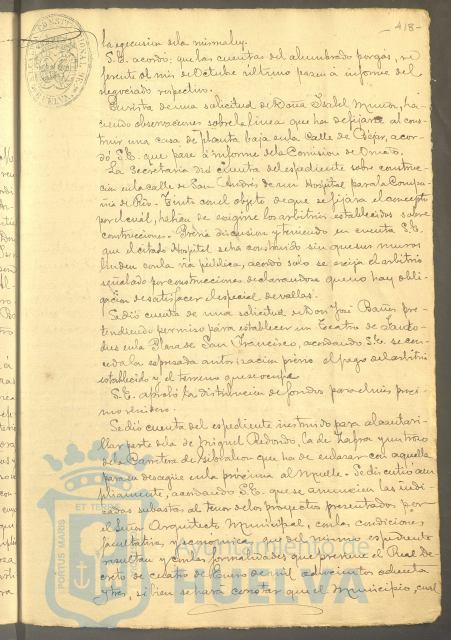 -418-
la ejecucion de la misma ley.
S.E. acordó, que las cuentas del alumbrado por gas, re-
ferente al mes de Octubre ultimo pasen á informe del
negociado respectivo.
En vista de una solicitud de Doña Isabel Muñoz, ha-
ciendo observaciones sobre la linea que ha de fijarse al cons-
truir una casa de planta baja en la Calle de Bejar, acor-
dó S.E. que pase á informe de la Comision de Ornato.
La Secretaría dió cuenta del espediente sobre construc-
cion en la calle de San Andrés de un Hospital para la Compa-
ñia de Rio-Tinto con el objeto de que se fijára el concepto
por el cual, habian de exigirse los arbitrios establecidos sobre
construcciones. Prévia discusion y teniendo en cuenta S.E.
que el citado Hospital será construido sin que sus muros
linden con la via pública, acordó solo se exija el arbitrio
señalado por construcciones declarandose que no hay obli-
gacion de satisfacer el especial de vallas.
Se dió cuenta de una solicitud de Don José Bañez pre-
tendiendo permiso para establecer un Teatro de
en la Plaza de San Francisco, acordando S.E. se con-
ceda la espresada autorizacion previo el pago del arbitrio
establecido y el terreno que ocupe.
S.E. aprobó la distribucion de fondos para el mes proxi-
mo venidero.
Se dió cuenta del espediente instruido para alcantari-
llar parte de la de Miguel Redondo, la de Zafra y un trozo
de la Carretera de Gibraleon que ha de enlazar con aquella
para su desagüe en la próxima al Muelle. Se discutió am-
pliamente, acordando S.E. que se anuncien las indi-
cadas subastas al tenor de los proyectos presentados por
el Señor Arquitecto Municipal, con las condiciones
facultativas y economicas, que del mismo espediente
resultan y con las formalidades que previene el Real De-
creto de cuatro de Enero de mil ochocientos ochenta
y tres, si bien se hará constar que el Municipio, cual
PORTUS MARIS
ET TERRAE
Ayuntamiento de
HUELVA